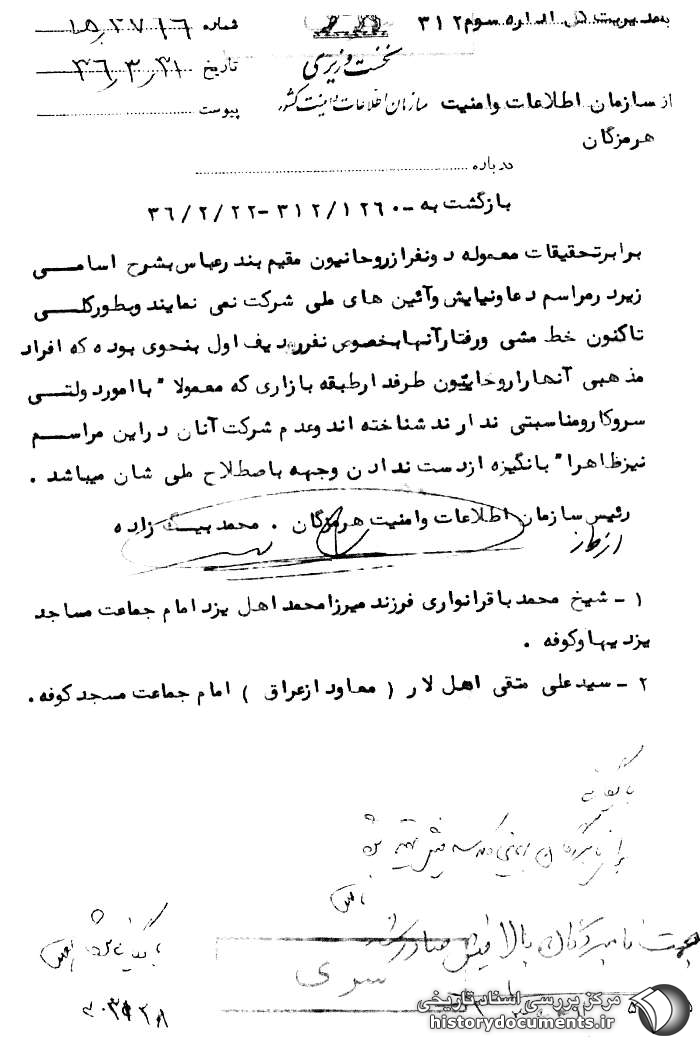 به مدیریت کل اداره سوم ۳۱۲
شماره ۱۵/۲۷۱۶
نخست وزیری
تاریخ ۳۶/۳/۳۱
از سازمان اطلاعات و امنیت سازمان اطلاعات و امنیت کشور
پیوست
هرمزگان
درباره
بازگشت به - ۳۱۲/۱۲۶۰ - ۳۶/۲/۲۲
برابر تحقیقات معموله دو نفر از روحانیون مقیم بندرعباس بشرح اسامی
زیر در مراسم دعا و نیایش و آئین های ملی شرکت نمی نمایند و بطورکلی
تاکنون خط مشی و رفتار آنها بخصوص نفر ردیف اول بنحوی بوده که افراد
مذهبی آنها را روحانیون طرفدار طبقه بازاری که معمولا" با امور دولتی
سروکار و مناسبتی ندارند شناخته اند و عدم شرکت آنان در این مراسم
نیز ظاهرا" بانگیزه از دست ندادن وجهه باصطلاح ملی شان میباشد .
رئیس سازمان اطلاعات و امنیت هرمزگان . محمد بیگ زاده
از طرف
۱ - شیخ محمد باقر انواری فرزند میرزا محمد اهل یزد امام جماعت مساجد
یزدیها و کوفه .
۲ - سید علی متقی اهل لار ( معاود از عراق ) امام جماعت مسجد کوفه .
بایگانی
جهت نامبردگان بالا فیش صادر
بایگانی شود
سری
مرکز بررسی اسناد تاریخی
historydocuments.ir